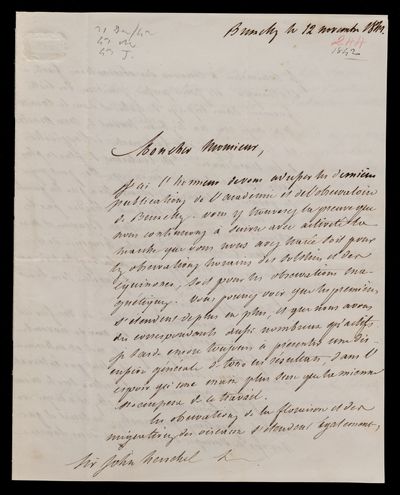 21 Dec/42
Bruxelles le 12 novembre 1842.
1842
Mon cher Monsieur,
J'ai l'honneur de vous adresser les dernières
publications de l'académie et de l'observatoire
de Bruxelles. vous y trouverez la preuve que
nous continuons à suivre avec activité la
marche que vous nous avez tracée soit pour
les observations horaires des solstices et des
équinoxes, soit pour les observations ma-
gnétiques. Vous pourrez voir que les premières
s'étendent de plus en plus, et que nous avons
des correspondants aussi nombreux qu'actifs.
je tarde encore toujours à présenter une dis-
cussion générale de tous ces résultats, dans l'
espoir qu'une main plus sûre que la mienne
s'occupera de ce travail.
les observations de la floraison et des
migrations des oiseaux s'étendent également,
Sir John Herschel